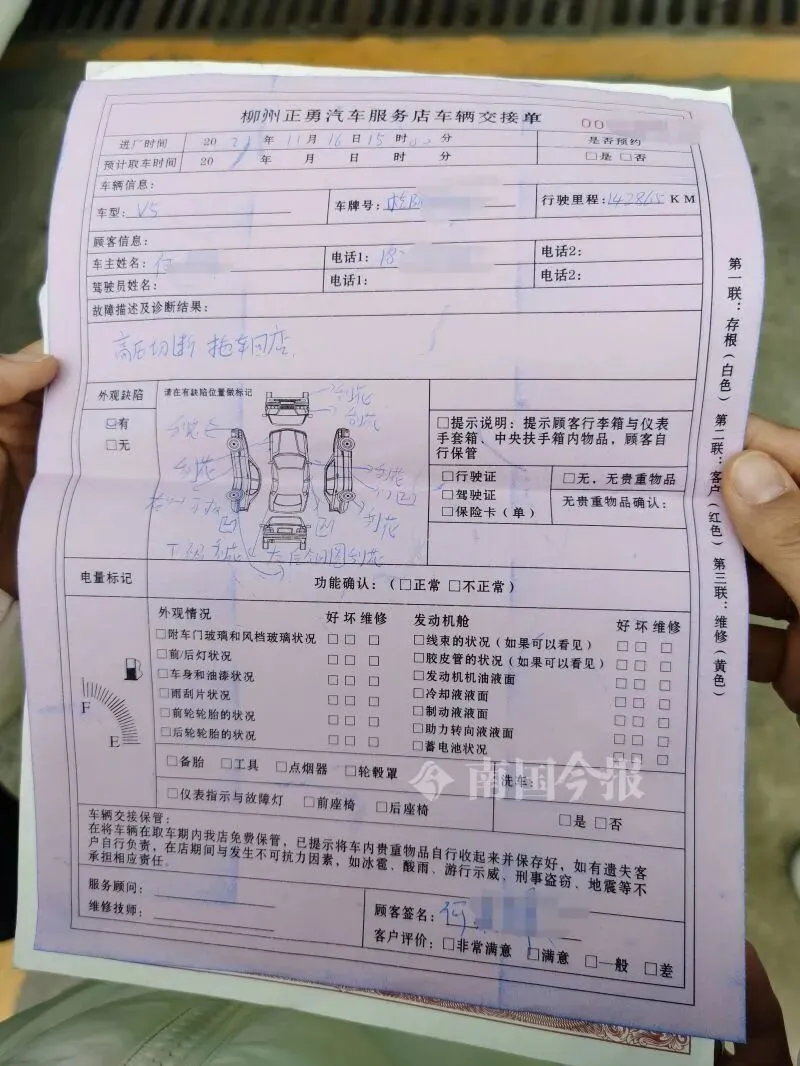 柳州正勇汽车服务店车辆交接单
00
进厂时间 2021年11月16日15时00分 是否预约
预计取车时间 20 年 月 日 时 分 □是 □否
车辆信息:
车型: V5 车牌号: 行驶里程: 142865 KM
顾客信息:
车主姓名: 何 电话1: 18 电话2:
驾驶员姓名: 电话1: 电话2:
故障描述及诊断结果:
高压切断 拖车回店
外观缺陷
☑有
□无
请在有缺陷位置做标记
刮花
刮花
刮花
刮花
刮花
凹
凹
刮花
下 刮花 左后轮圈刮花
□提示说明: 提示顾客行李箱与仪表
手套箱、中央扶手箱内物品, 顾客自
行保管
□行驶证
□驾驶证
□保险卡(单)
□无, 无贵重物品
无贵重物品确认:
电量标记
F
E
功能确认: (□正常 □不正常)
外观情况 好 坏 维修
□附车门玻璃和风档玻璃状况 □ □ □
□前/后灯状况 □ □ □
□车身和油漆状况 □ □ □
□雨刮片状况 □ □ □
□前轮轮胎的状况 □ □ □
□后轮轮胎的状况 □ □ □
发动机舱 好 坏 维修
□线束的状况(如果可以看见) □ □ □
□胶皮管的状况(如果可以看见) □ □ □
□发动机机油液面 □ □ □
□冷却液液面 □ □ □
□制动液液面 □ □ □
□助力转向液液面 □ □ □
□蓄电池状况 □ □ □
□备胎 □工具 □点烟器 □轮毂罩
□仪表指示与故障灯 □前座椅 □后座椅
洗车:
□是 □否
车辆交接保管:
在将车辆在取车期内我店免费保管, 已提示将车内贵重物品自行收起来并保存好, 如有遗失客
户自行负责, 在店期间与发生不可抗力因素, 如冰雹、酸雨、游行示威、刑事盗窃、地震等不
承担相应责任。
服务顾问:
维修技师:
顾客签名: 何
客户评价: □非常满意 □满意 □一般 □差
第一联: 存根(白色) 第二联: 客户(红色) 第三联: 维修(黄色)
南国今报